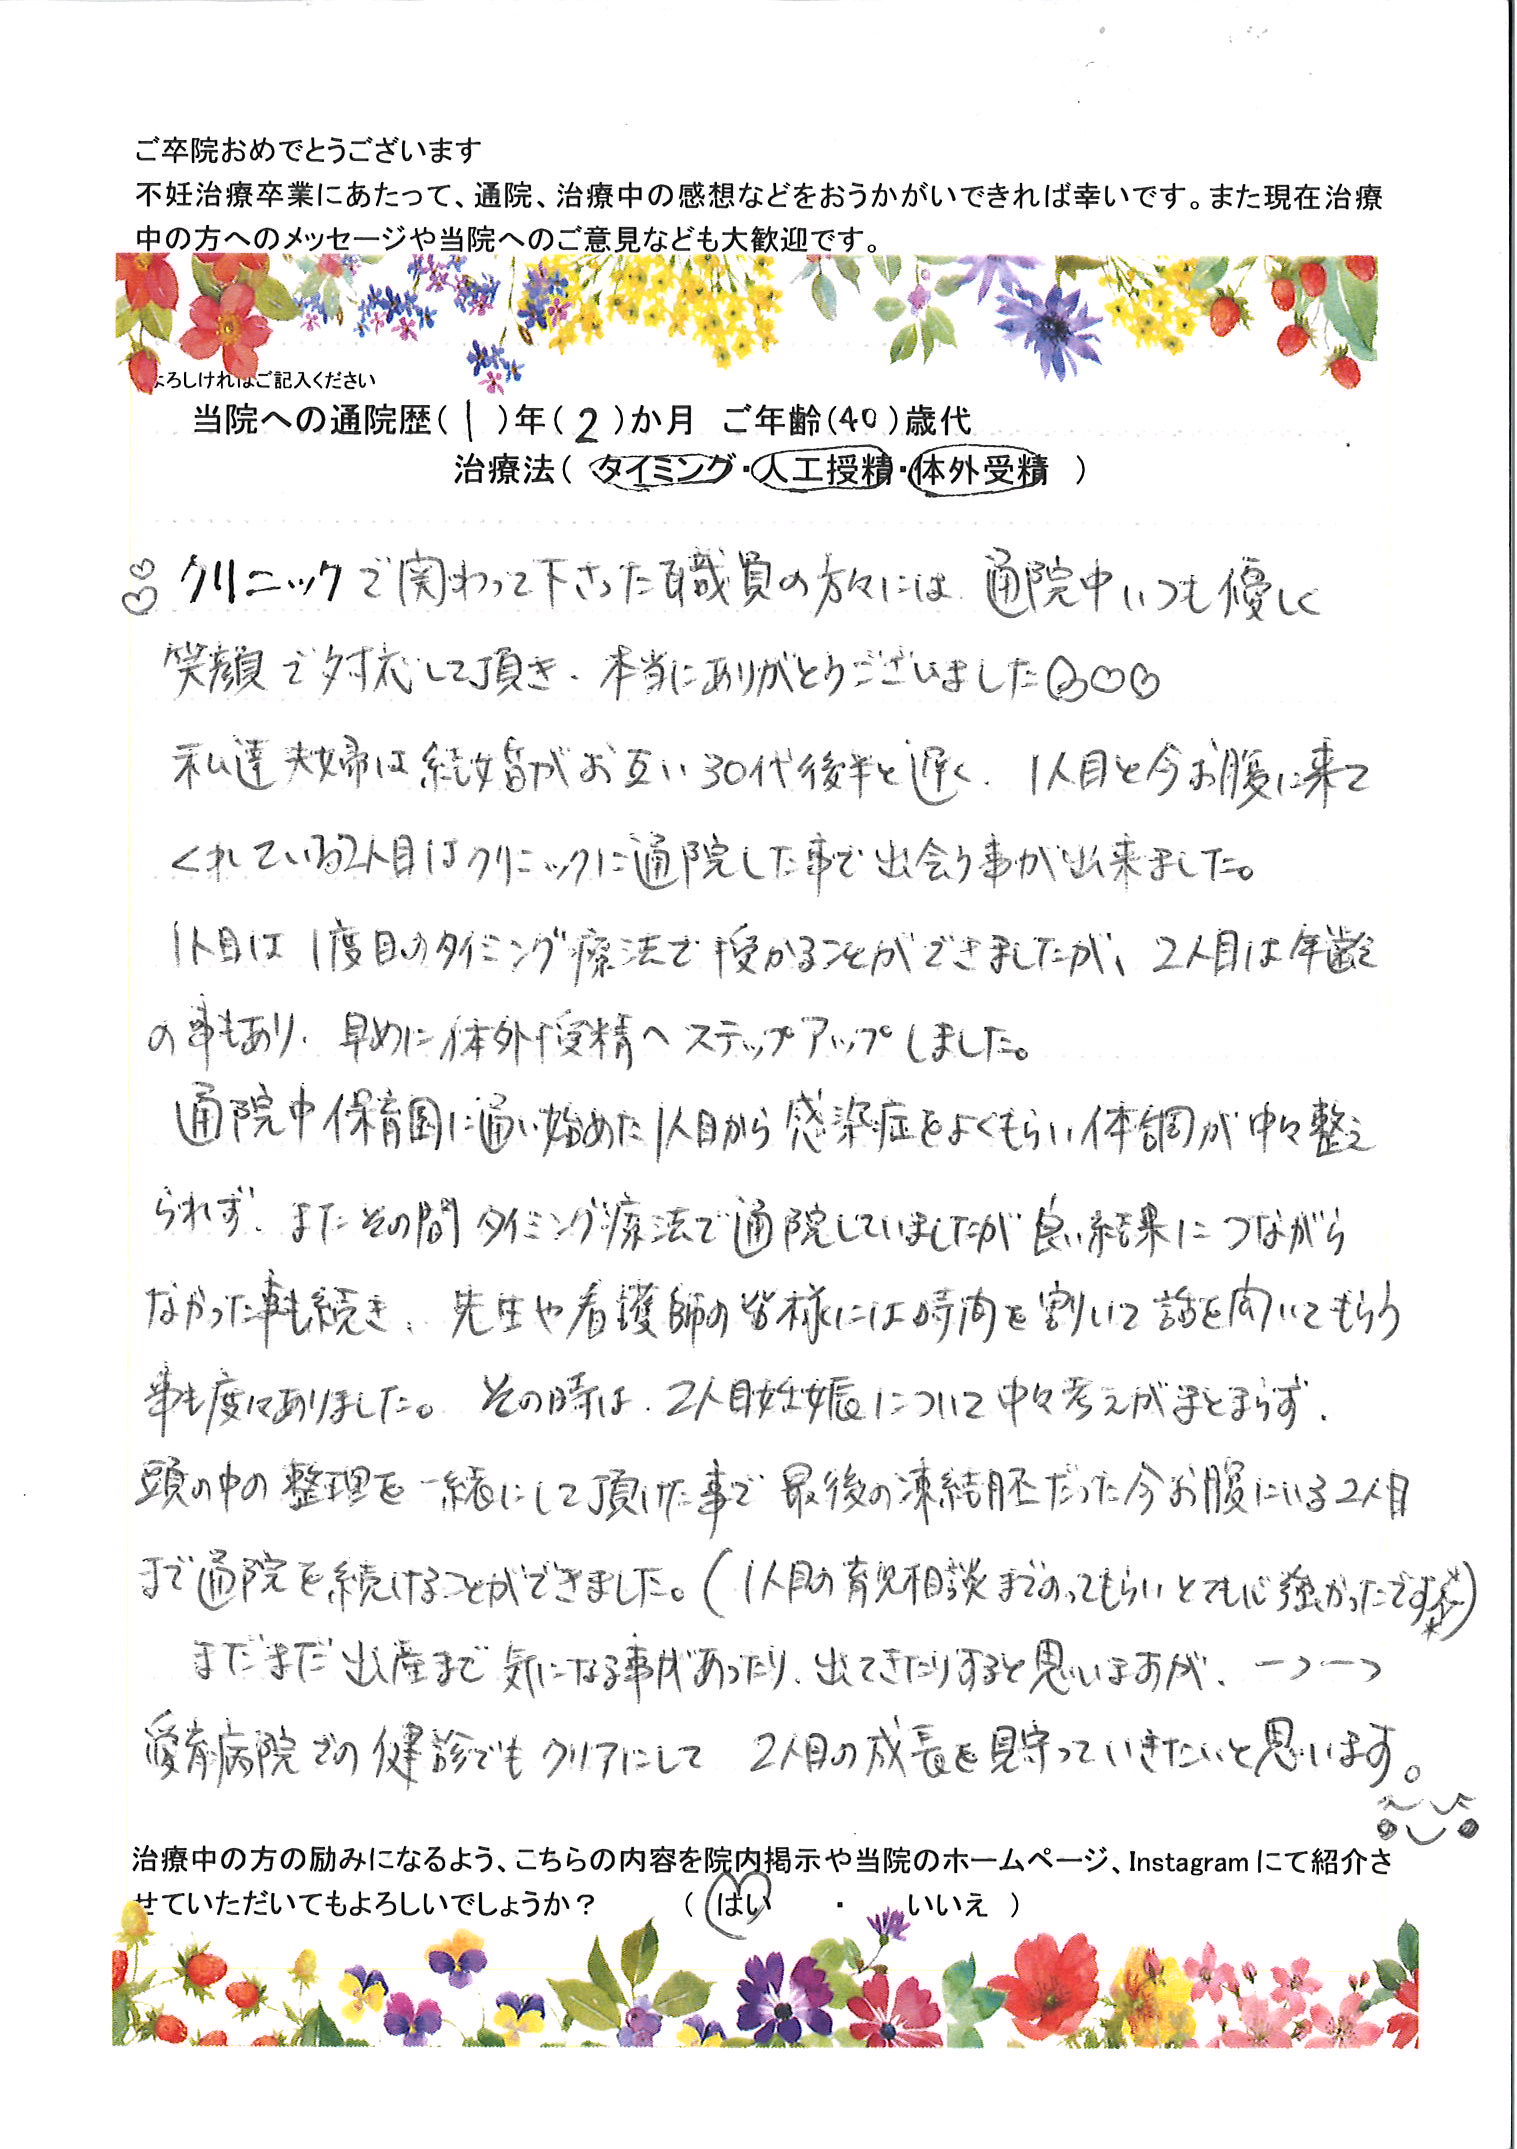 ご卒院おめでとうございます
不妊治療卒業にあたって、通院、治療中の感想などをおうかがいできれば幸いです。また現在治療
中の方へのメッセージや当院へのご意見なども大歓迎です。
よろしければご記入ください
当院への通院歴(1)年(2)か月 ご年齢(40)歳代
治療法(タイミング・人工授精・体外受精)
クリニックで関わって下さった職員の方々には、通院中いつも優しく
笑顔で対応して頂き、本当にありがとうございました
私達夫婦は結婚がお互い30代後半と遅く、1人目と今お腹に来て
くれている2人目はクリニックに通院した事で出会う事が出来ました。
1人目は1度目のタイミング療法で授かることができましたが、2人目は年齢
の事もあり、早めに体外授精へステップアップしました。
通院中保育園に通い始めた1人目から感染症をよくもらい体調が中々整え
られず、またその間タイミング療法で通院していましたが良い結果につながら
なかった事も続き、先生や看護師の皆様には時間を割いて話を聞いてもらう
事も度々ありました。その時は、2人目妊娠について中々考えがまとまらず、
頭の中の整理を一緒にして頂けた事で最後の凍結胚だった今お腹にいる2人目
まで通院を続けることができました。(1人目の育児相談までのってもらいとても心強かったです)
まだまだ出産まで気になる事があったり、出てきたりすると思いますが、一つ一つ
愛育病院での健診でもクリアにして 2人目の成長を見守っていきたいと思います。
治療中の方の励みになるよう、こちらの内容を院内掲示や当院のホームページ、Instagramにて紹介さ
せていただいてもよろしいでしょうか？ (はい ・ いいえ)